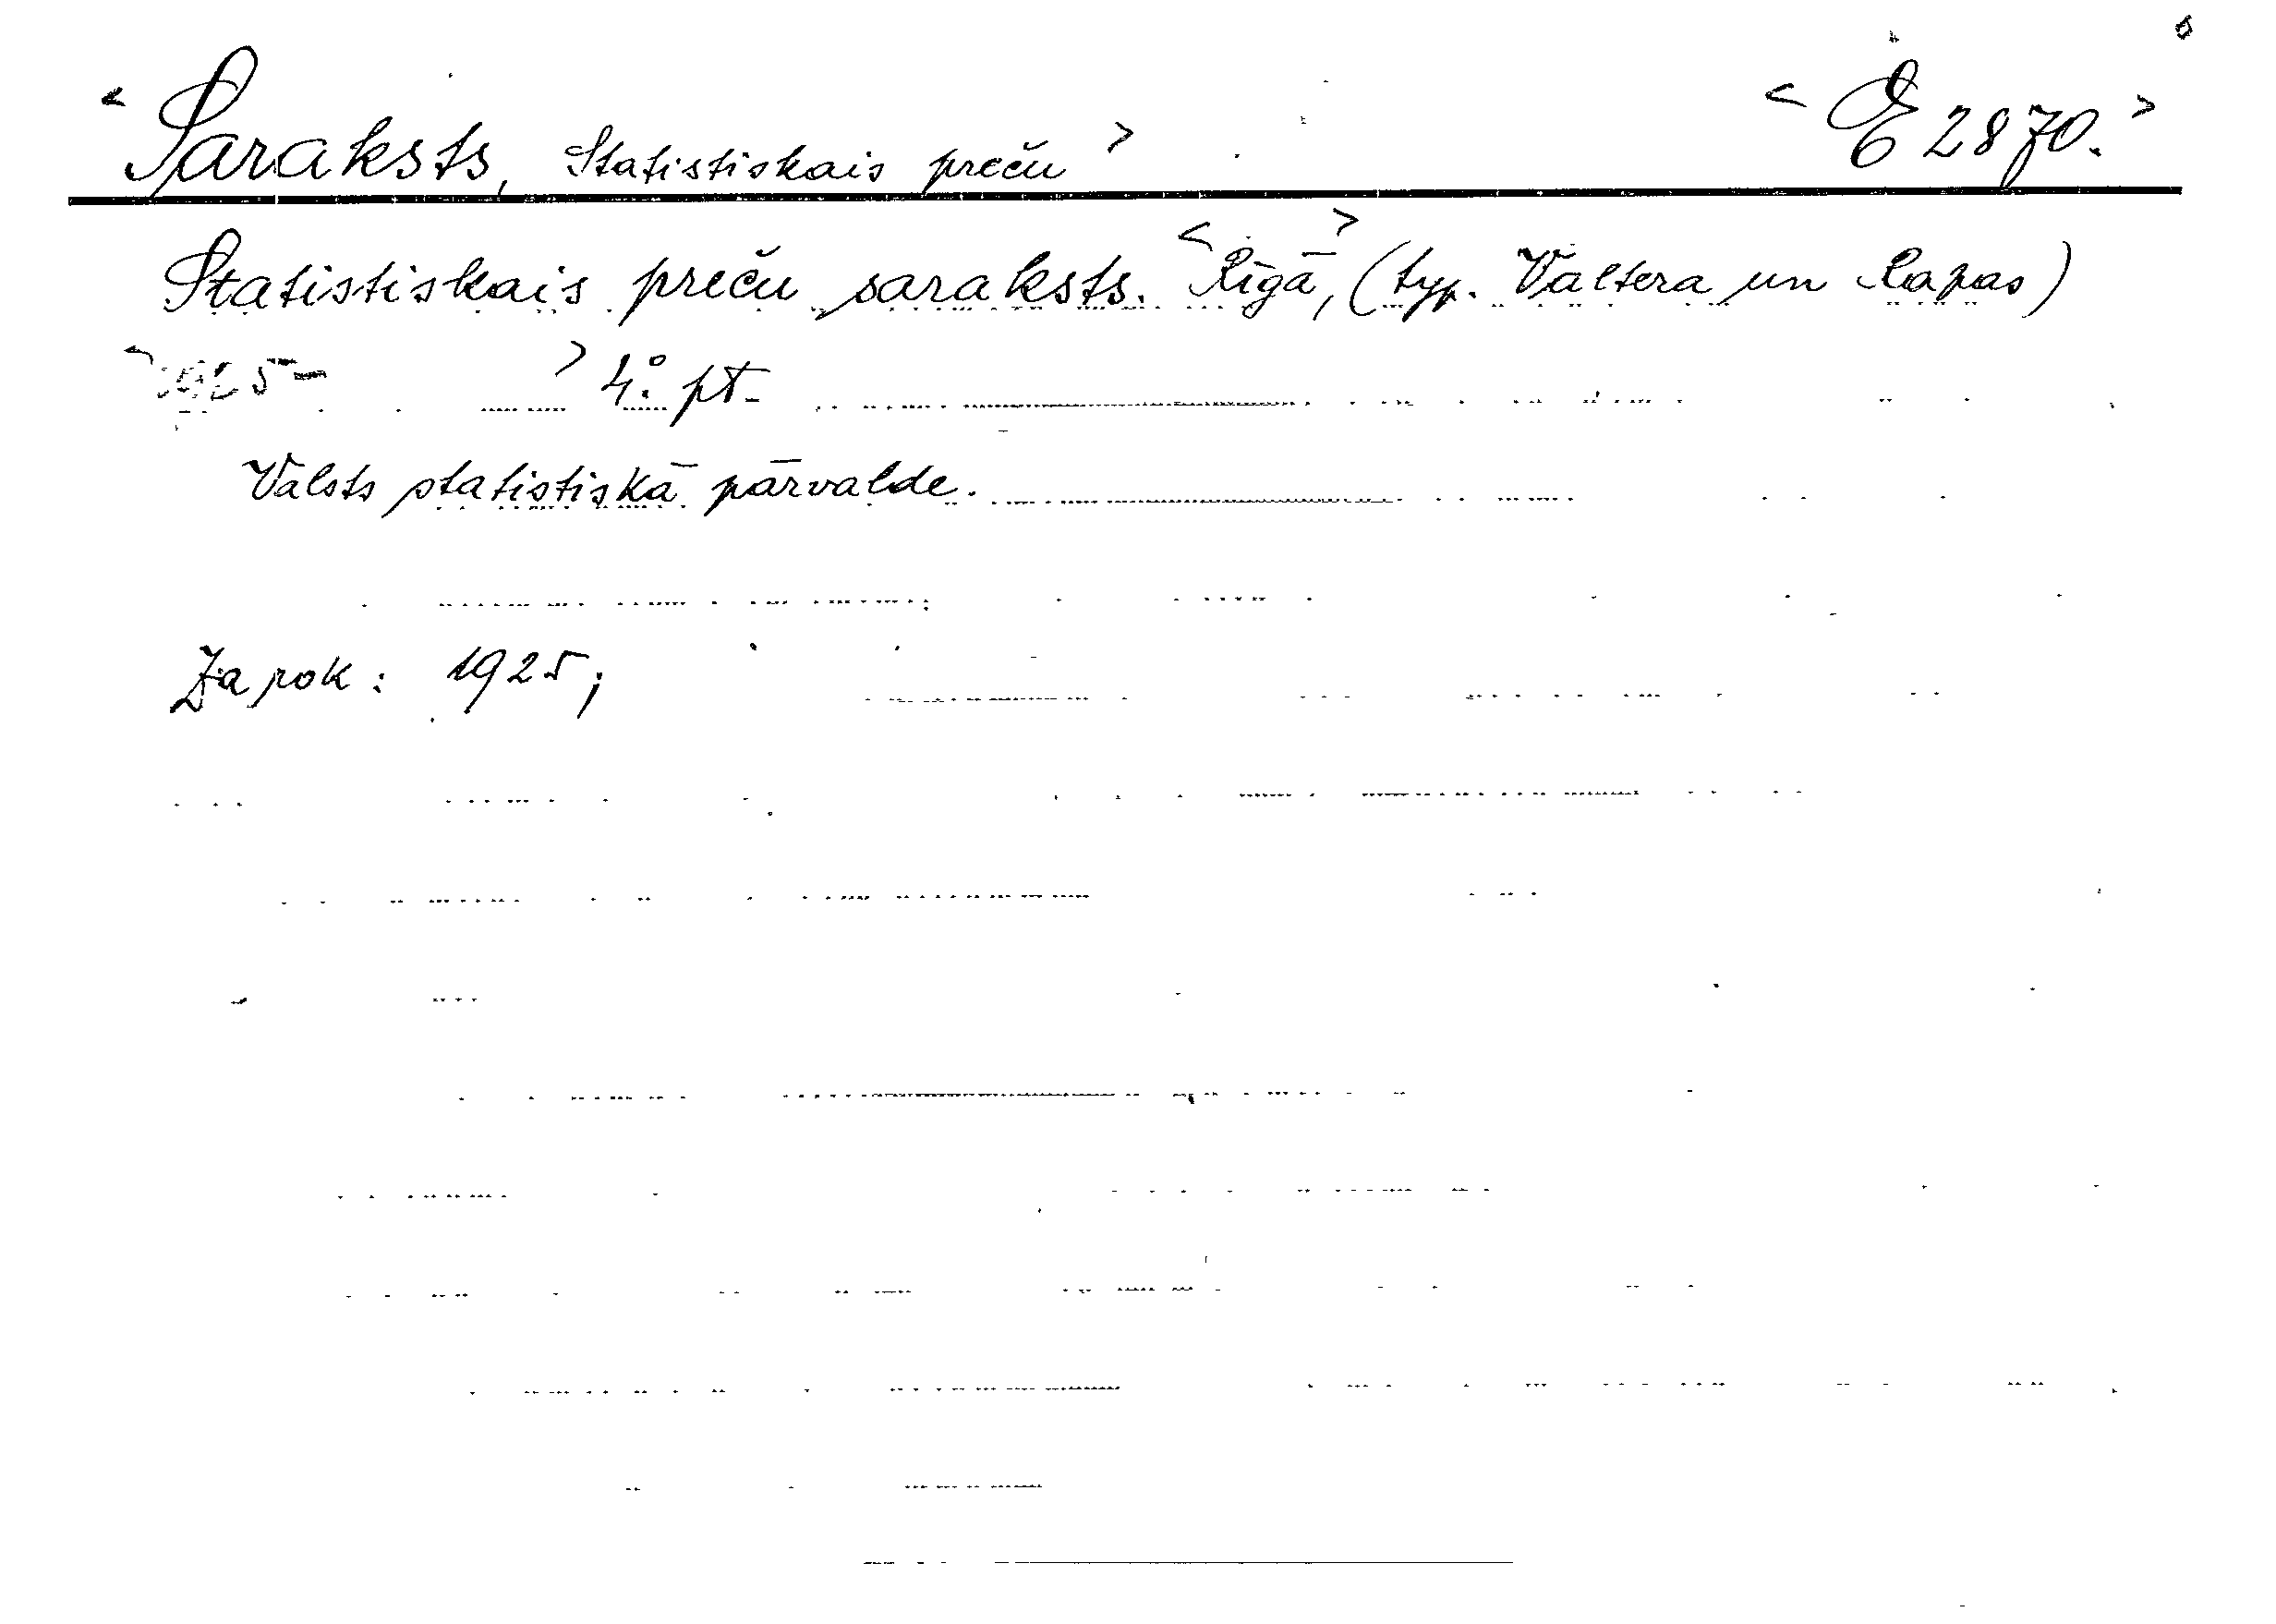 < Saraksts, Statistiskais preču > < E 2870. >
Statistiskais preču saraksts. <Rīgā,> (typ. Valtera un Rapas)
<1925- > 4° pt.
Valsts statistiskā pārvalde.
Za rok: 1925;